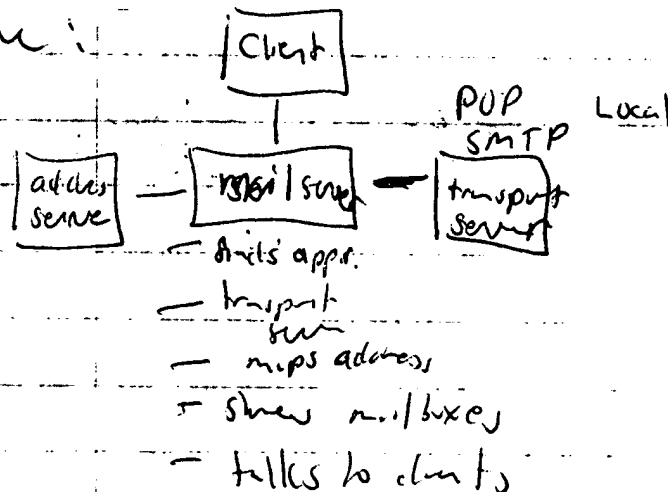 Client
POP Local
SMTP
address
server
mail server
transport
server
- finds appr.
- transport
server
- maps address
- stores mailboxes
- talks to clients